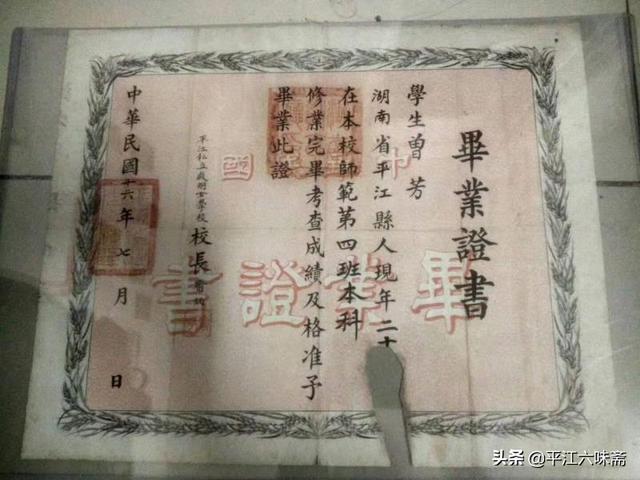 畢業證書
學生曾芳
湖南省平江縣人現年二十
在本校師範第四班本科
修業完畢考查成績及格准予
畢業此證
平江私立啟明女學校校長
中華民國十六年七月 日
國 中
畢業證書
头条 @平江六味斋